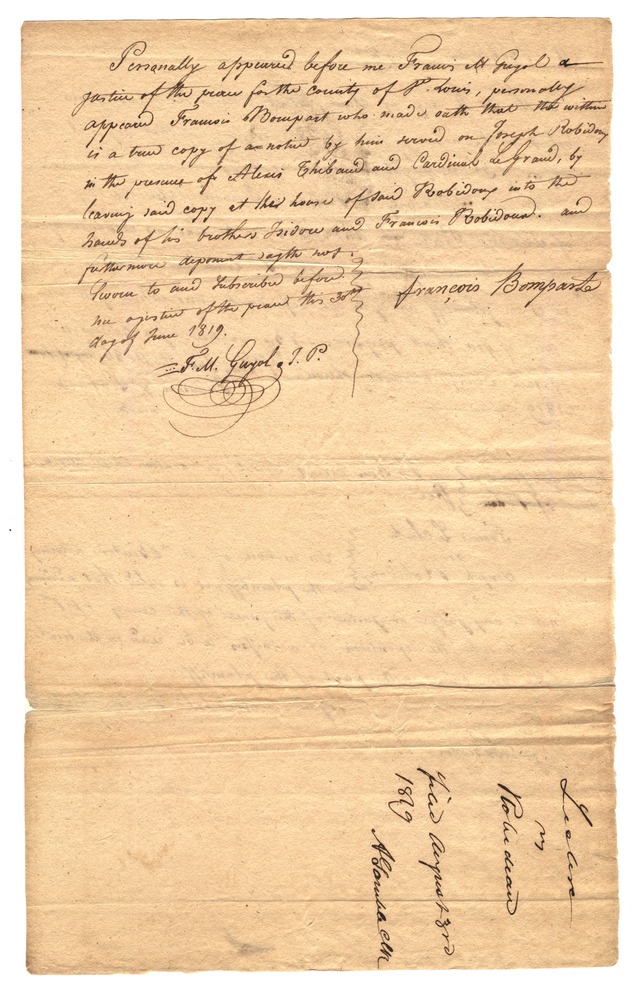 Personally appeared before me Francis M Guyol a
justice of the peace for the county of St. Louis, personally
appeared Francois Bompart who made oath that the within
is a true copy of a notice by him served on Joseph Robidoux
in the presence of Alexis Thibaud and Cardinal le Grand, by
leaving said copy at the house of said Robidoux into the
hands of his brothers Isidore and Francois Robidoux. and
futhermore deponent sayth not
Sworn to and subscribed before
me a justice of the peace this 30th
day of June 1819.
françois Bompart
F. M. Guyol, J. P.
vs
Robideau
Filed August 3rd
1819
A Gamble Clk